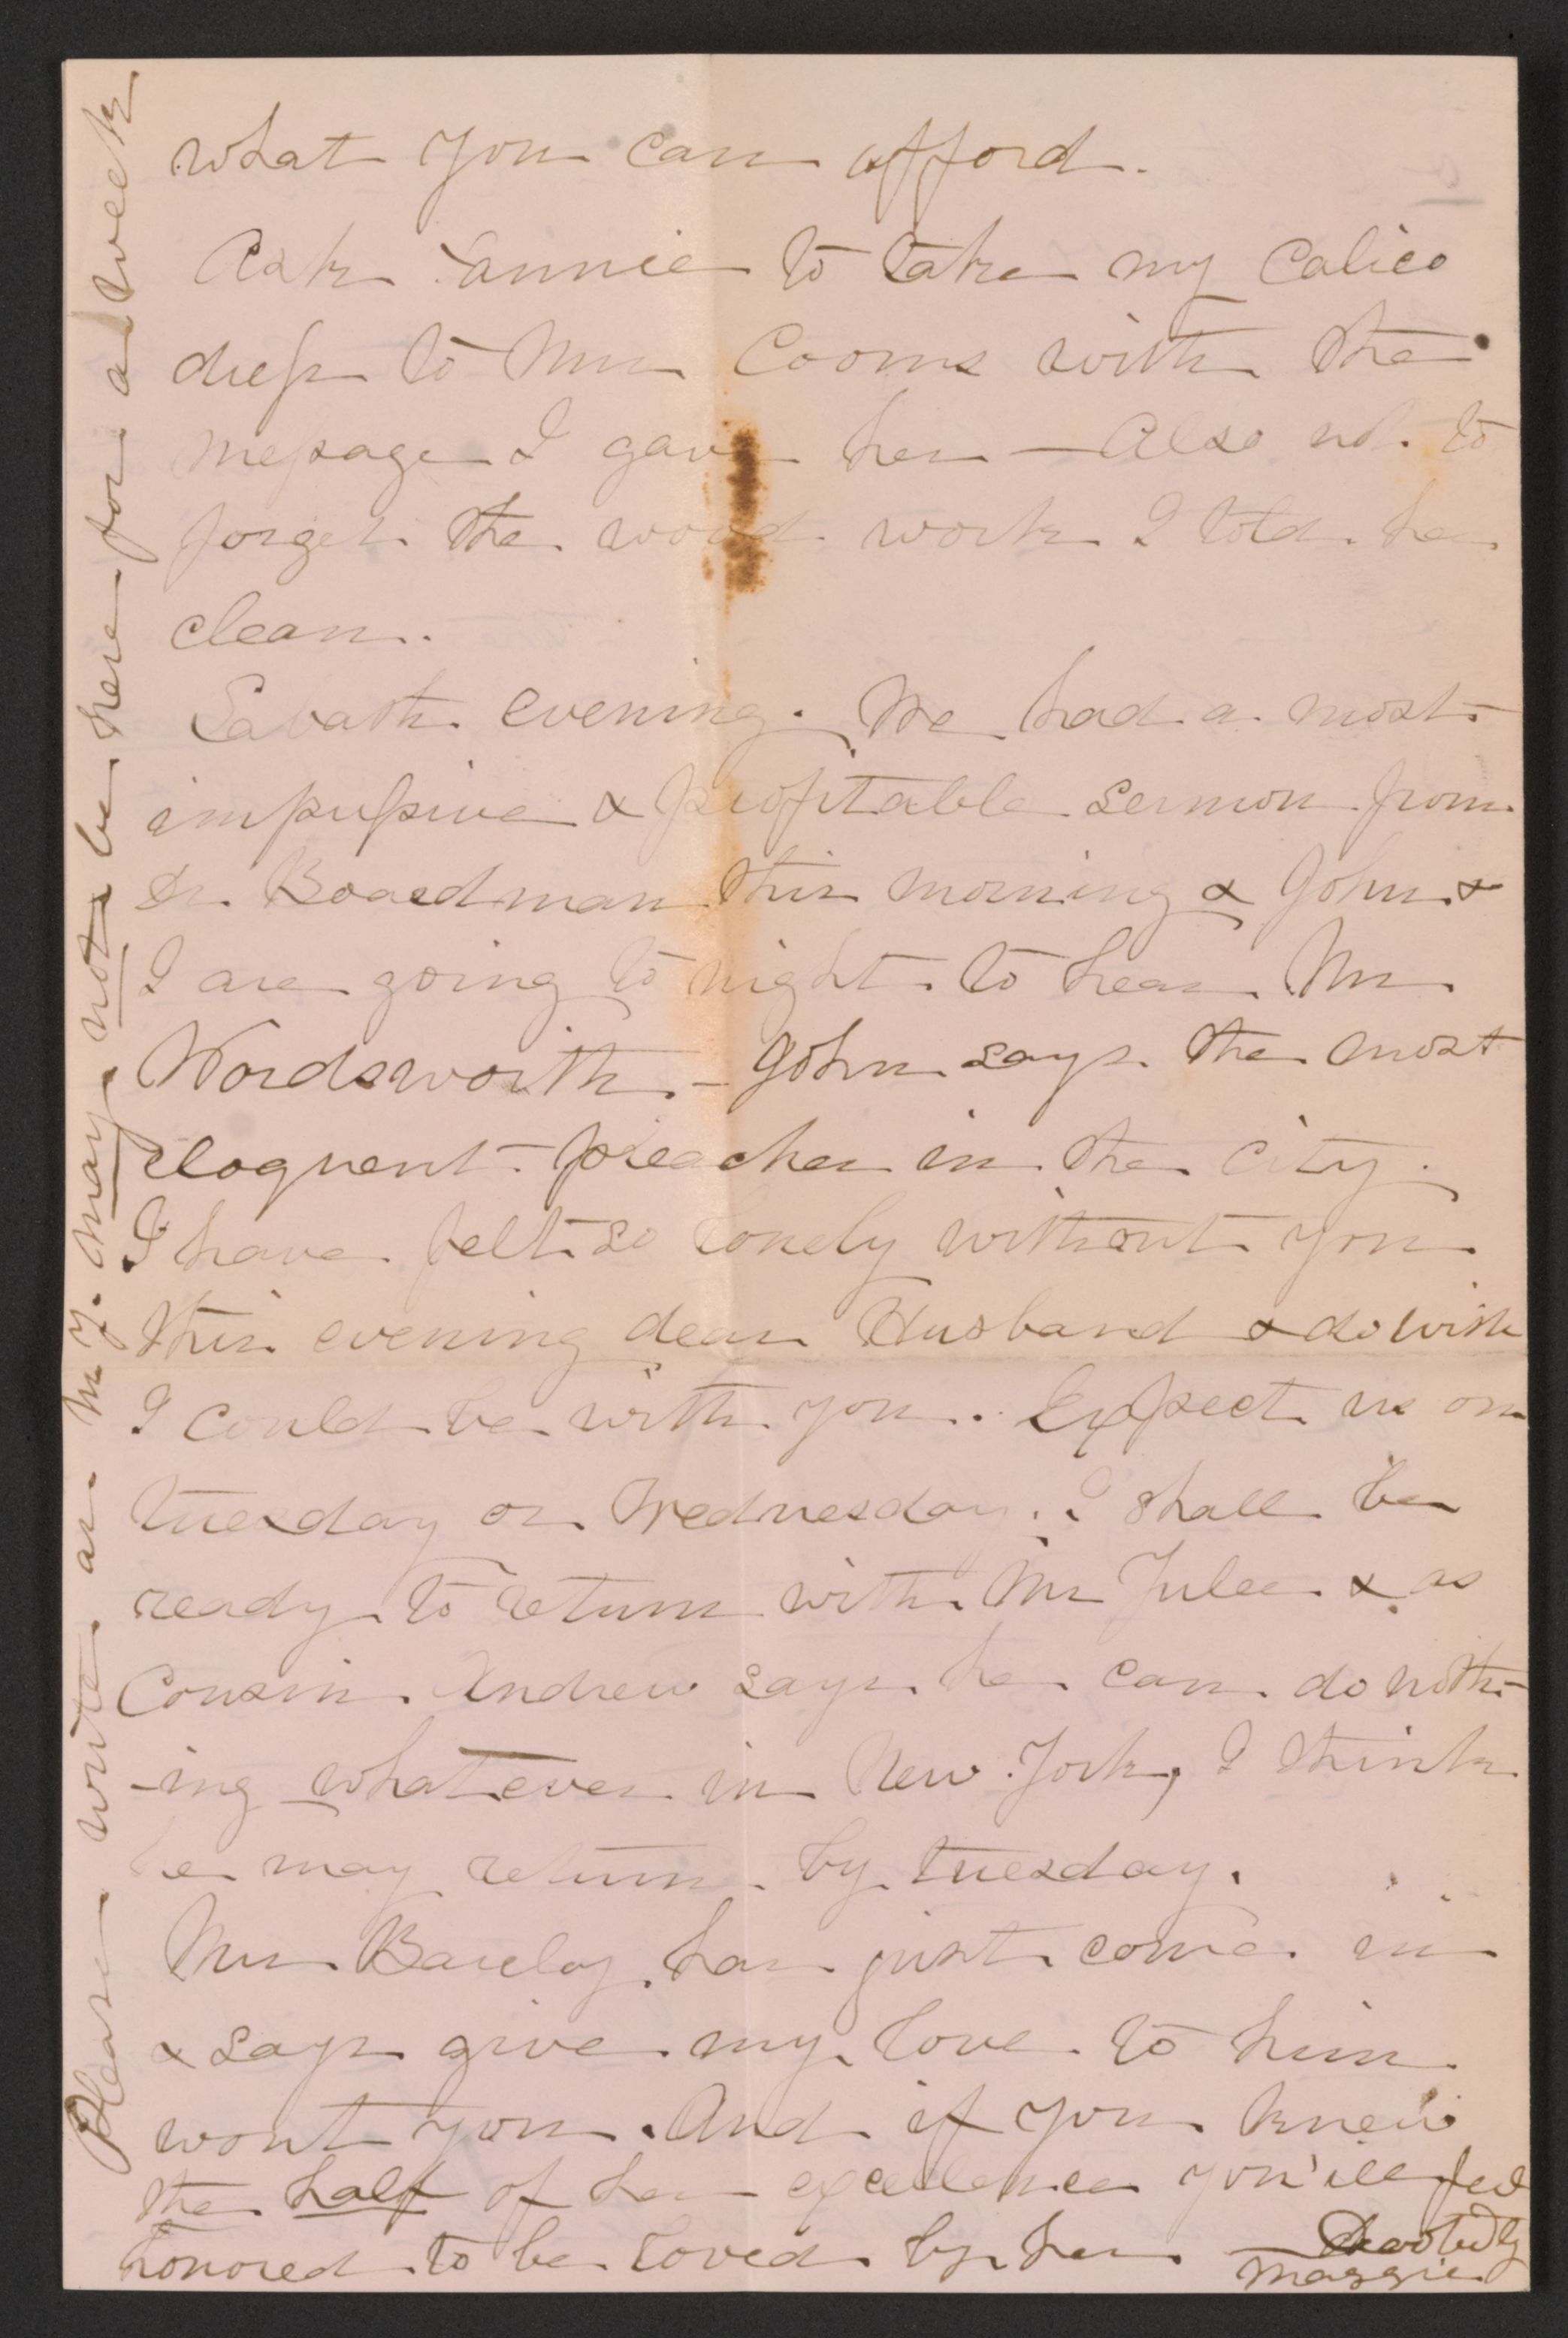 what you can afford.
Ask Fannie to take my Calico
dress to Mrs Cooms with the
message I gave her — Also not to
forget the wood work I told her
clean.
Sabath evening. We had a most
impressive & profitable sermon from
Dr. Boardman this morning & John &
I are going to night to hear Mr.
Wordsworth – John says the most
eloquent preacher in the city.
I have felt so lonely without you
this evening dear Husband & do wish
I could be with you. Expect us on
tuesday or Wednesday. I shall be
ready to return with Mr Tulee & as
Cousin Andrew says he can do noth-
-ing whatever in New York, I think
he may return by tuesday.
Mrs Barclay has just come in
& says give my love to him
wont you. And if you knew
the half of her excellence you'ill feel
honored to be loved by her — Devotedly
Maggie
Please write as my. may not be here for a week